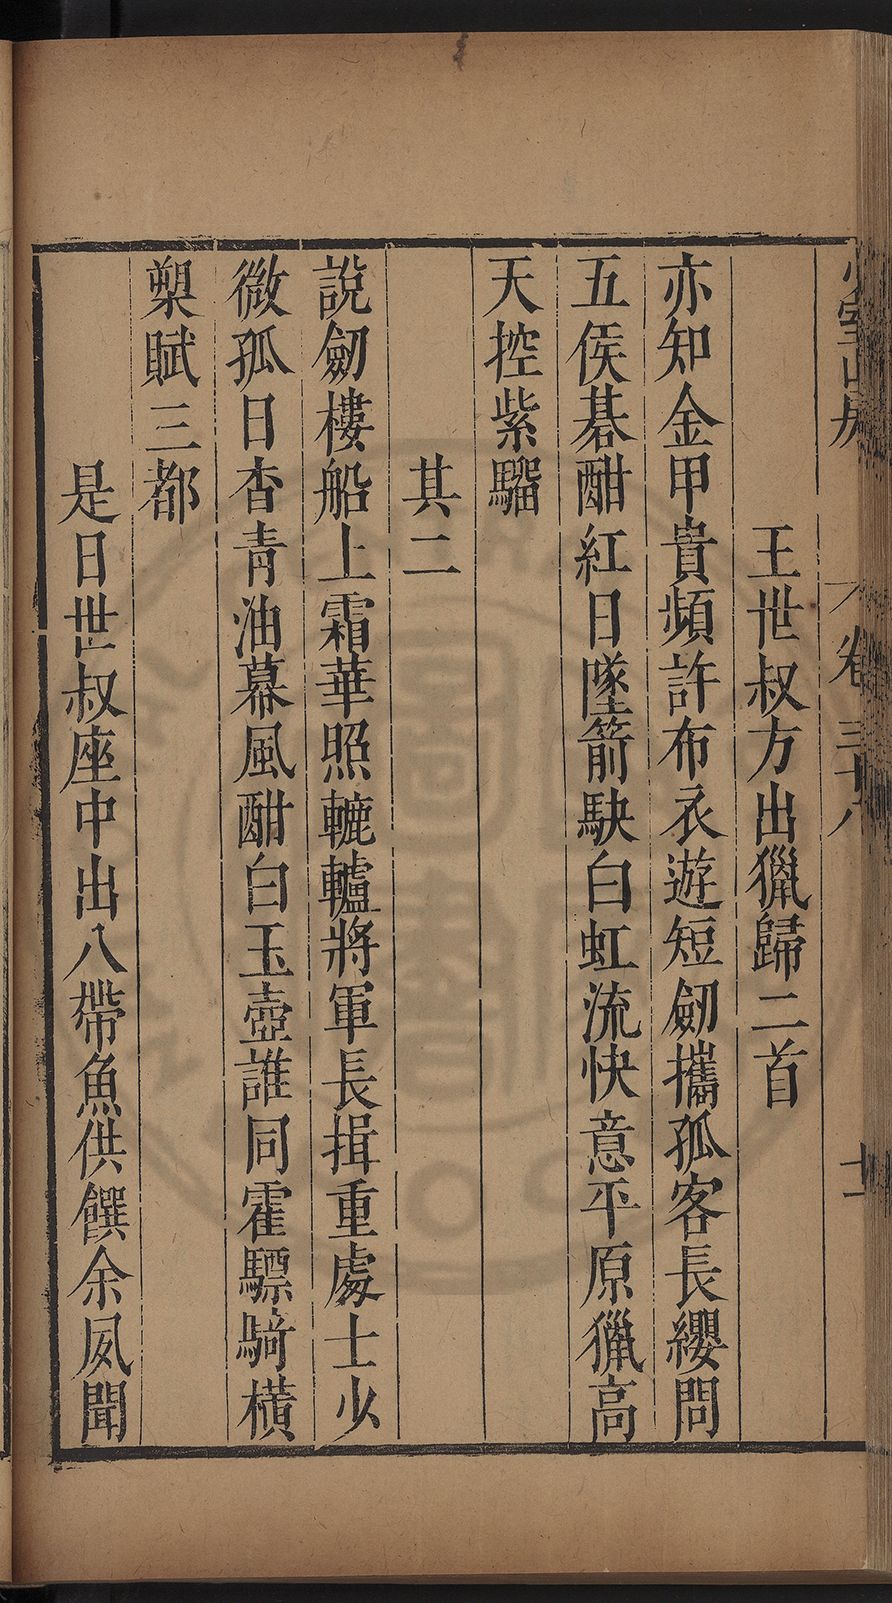 王世叔方出獵歸二首
亦知金甲貴頻許布衣遊短劒攜孤客長纓問
五侯碁酣紅日墜箭駃白虹流快意平原獵高
天控紫騮
其二
說劒樓船上霜華照轆轤將軍長揖重處士少
微孤日杳青油幕風酣白玉壺誰同霍驃騎橫
槊賦三都
是日世叔座中出八帶魚供饌余夙聞
卷三十八
十一